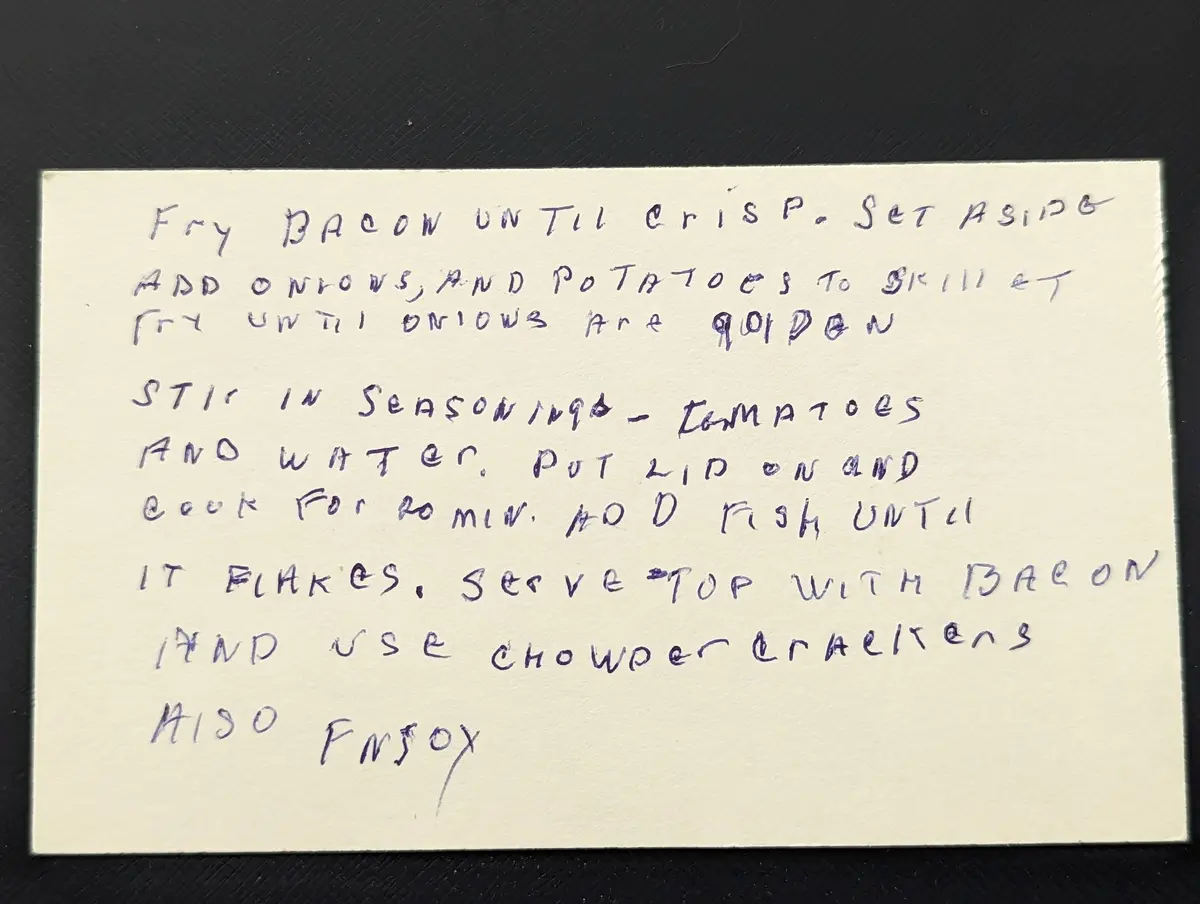 Fry BACON UNTIl CrISP. SET ASIDE
ADD ONIONS, AND POTATOES To SKIllET
Fry UNTIl ONIONS Are GOlDEN
STIr IN SEASONINGS - TOMATOES
AND WATEr. PUT LID ON AND
COOK For 20 MIN. ADD FISH UNTIl
IT FlAKES. SErVE TOP WITH BACON
AND USE CHOWDEr CrACKErS
AlSO ENJOY